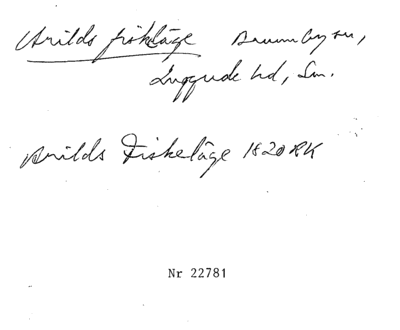 Arilds fiskeläge Brunnby sn,
Luggude hd, Sn.
Arilds Fiskeläge 1820 RK
Nr 22781